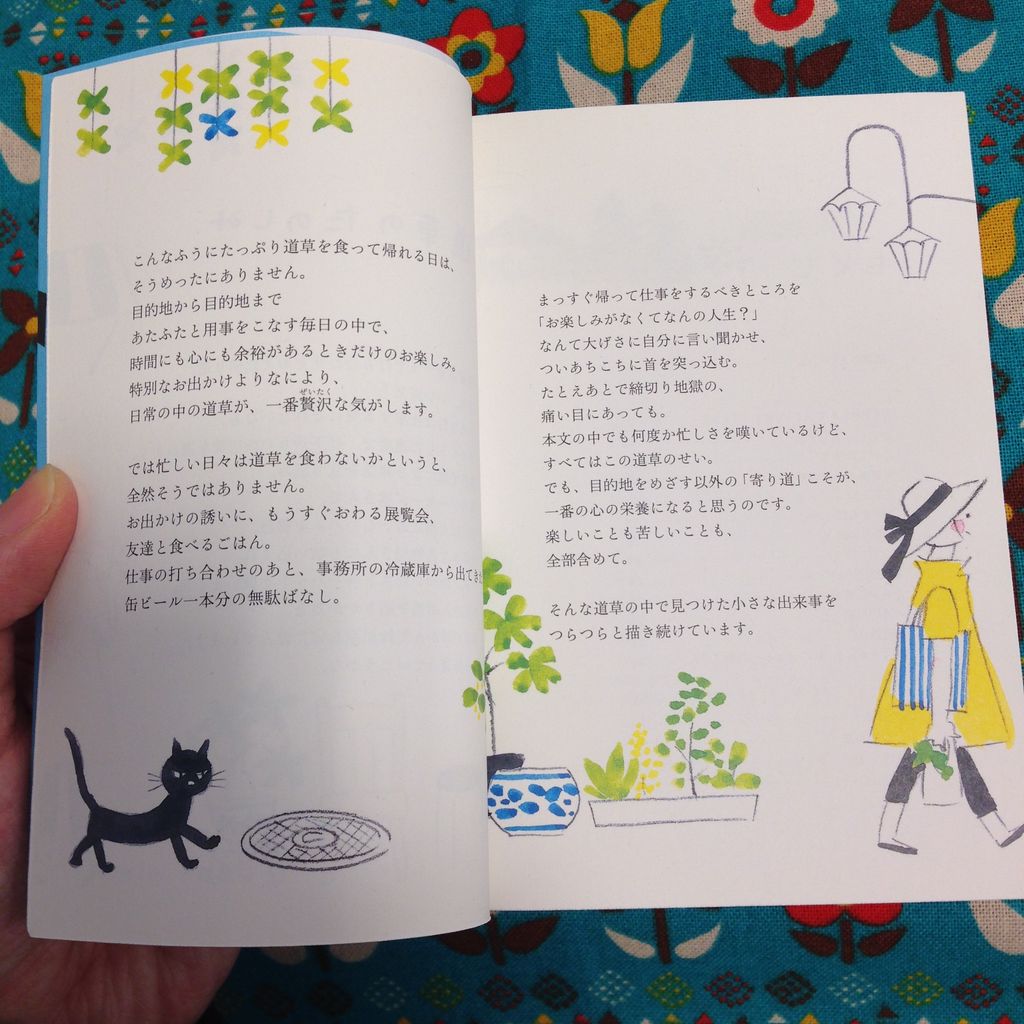 こんなふうにたっぷり道草を食って帰れる日は、
そうめったにありません。
目的地から目的地まで
あたふたと用事をこなす毎日の中で、
時間にも心にも余裕があるときだけのお楽しみ。
特別なお出かけよりなにより、
ぜいたく
日常の中の道草が、一番贅沢な気がします。
では忙しい日々は道草を食わないかというと、
全然そうではありません。
お出かけの誘いに、もうすぐおわる展覧会、
友達と食べるごはん。
仕事の打ち合わせのあと、事務所の冷蔵庫から出てきた
缶ビール一本分の無駄ばなし。
まっすぐ帰って仕事をするべきところを
「お楽しみがなくてなんの人生？」
なんて大げさに自分に言い聞かせ、
ついあちこちに首を突っ込む。
たとえあとで締切り地獄の、
痛い目にあっても。
本文の中でも何度か忙しさを嘆いているけど、
すべてはこの道草のせい。
でも、目的地をめざす以外の「寄り道」こそが、
一番の心の栄養になると思うのです。
楽しいことも苦しいことも、
全部含めて。
そんな道草の中で見つけた小さな出来事を
つらつらと描き続けています。